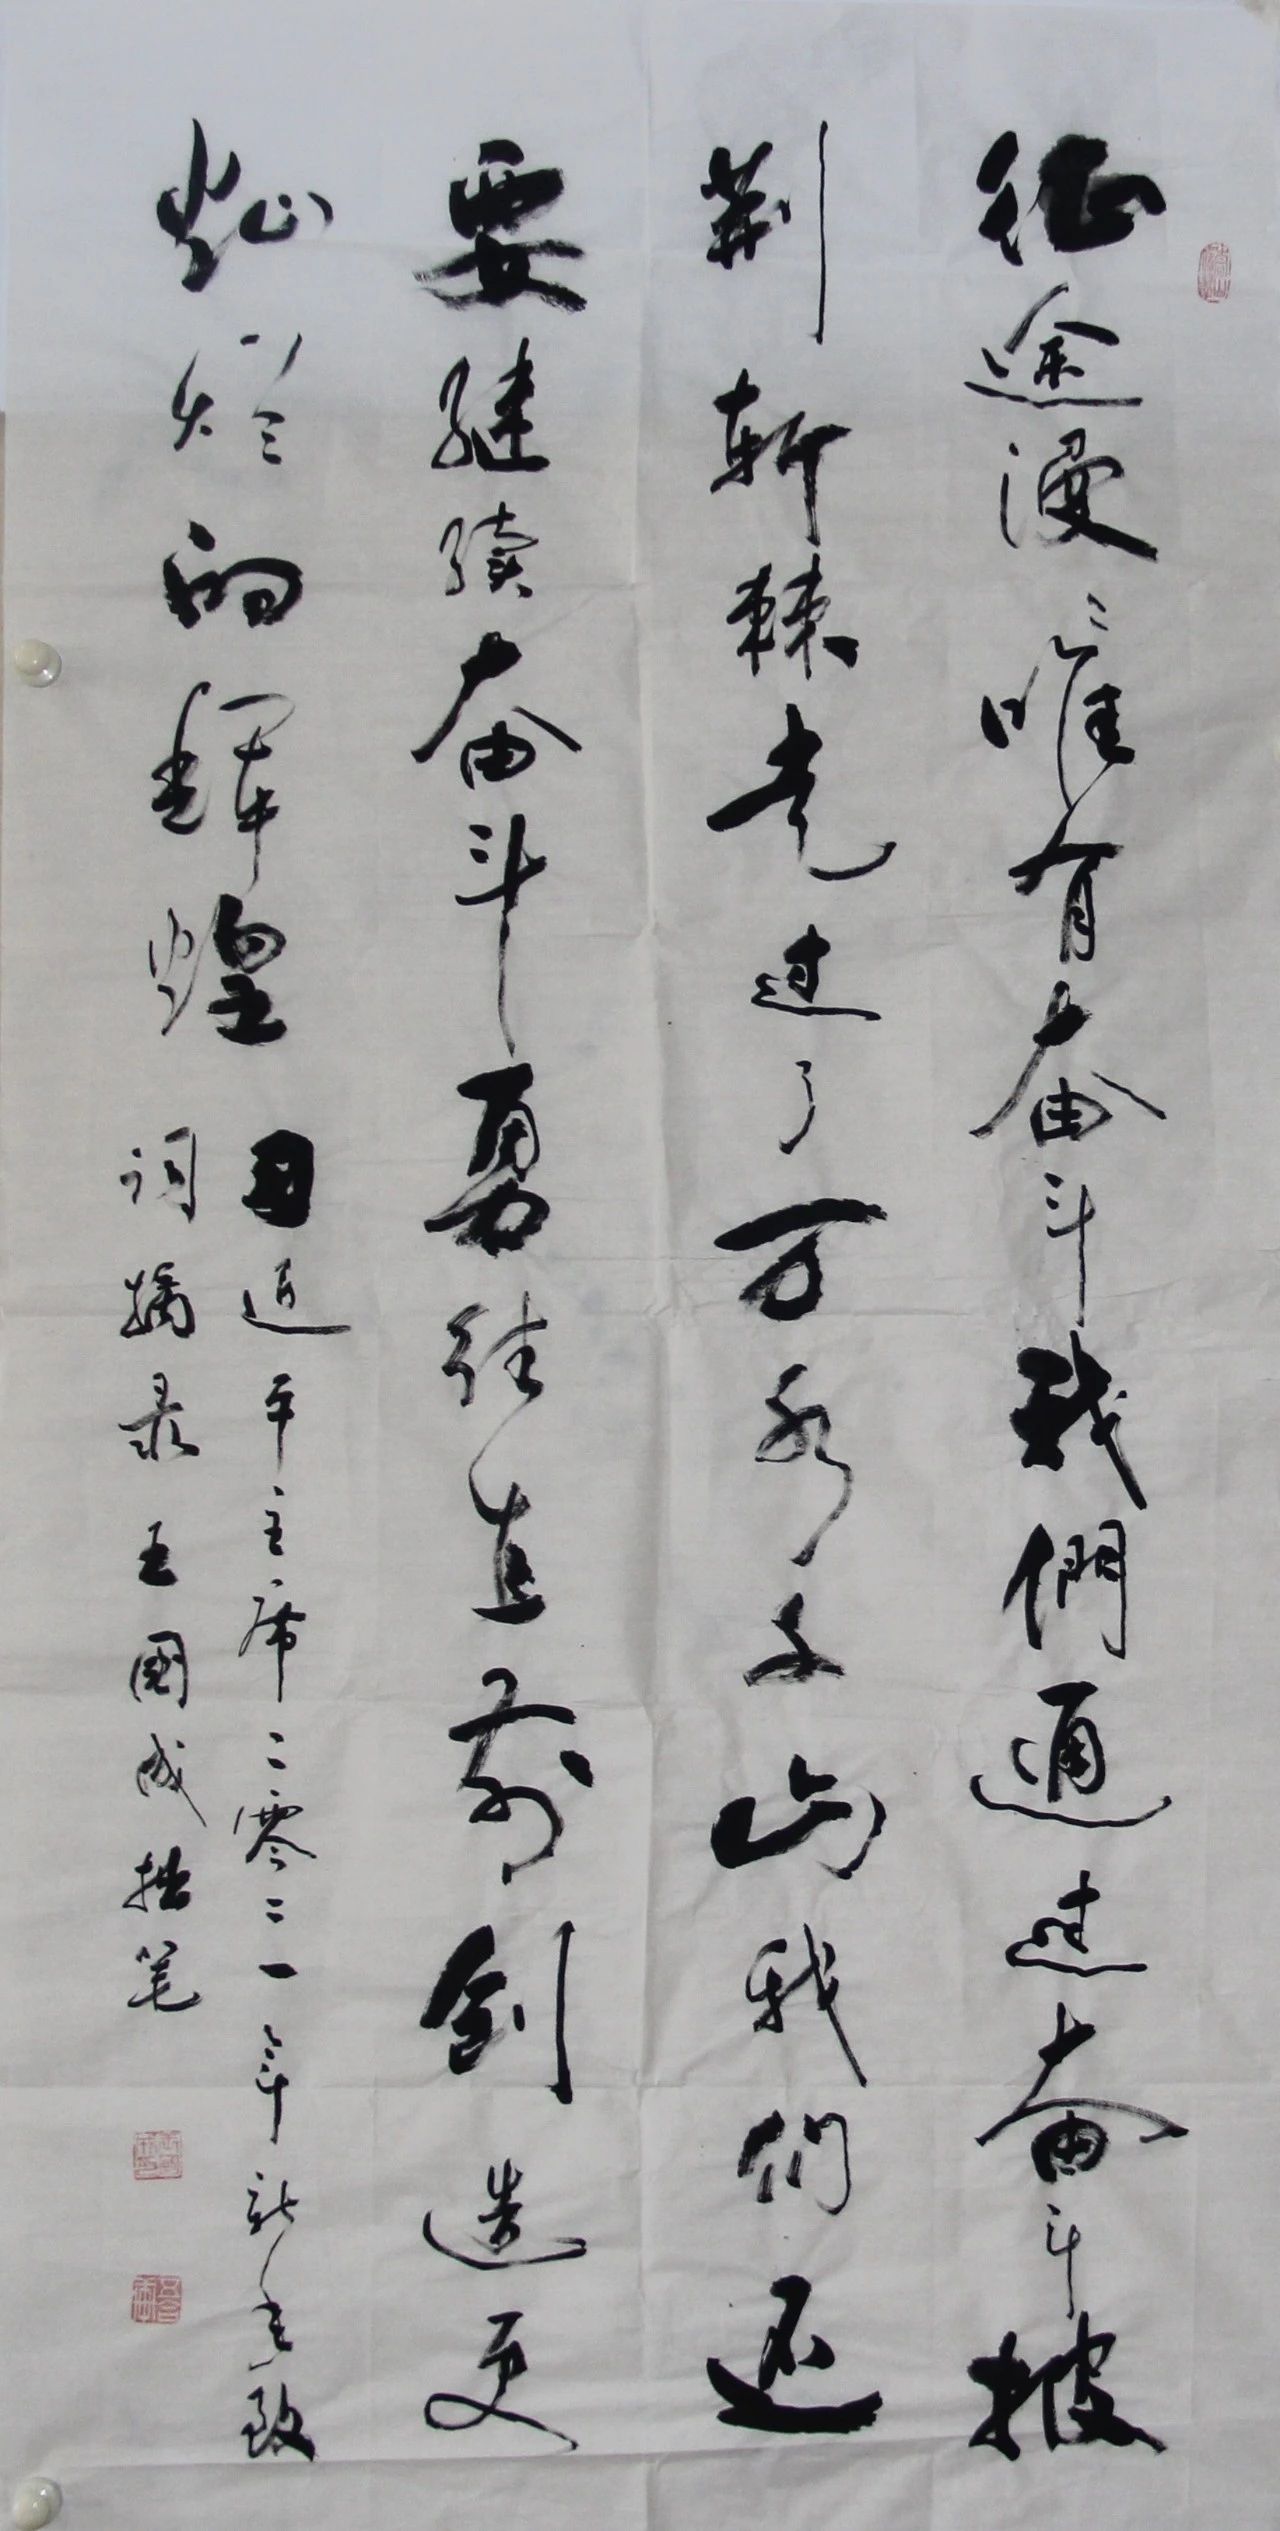 征途漫〻唯有奋斗我們通过奋斗披
荆斩棘走过了万水千山我们还
要继续奋斗勇往直前创造更
灿烂的辉煌
习近平主席二零二一年新年致
词摘录王國成拙笔